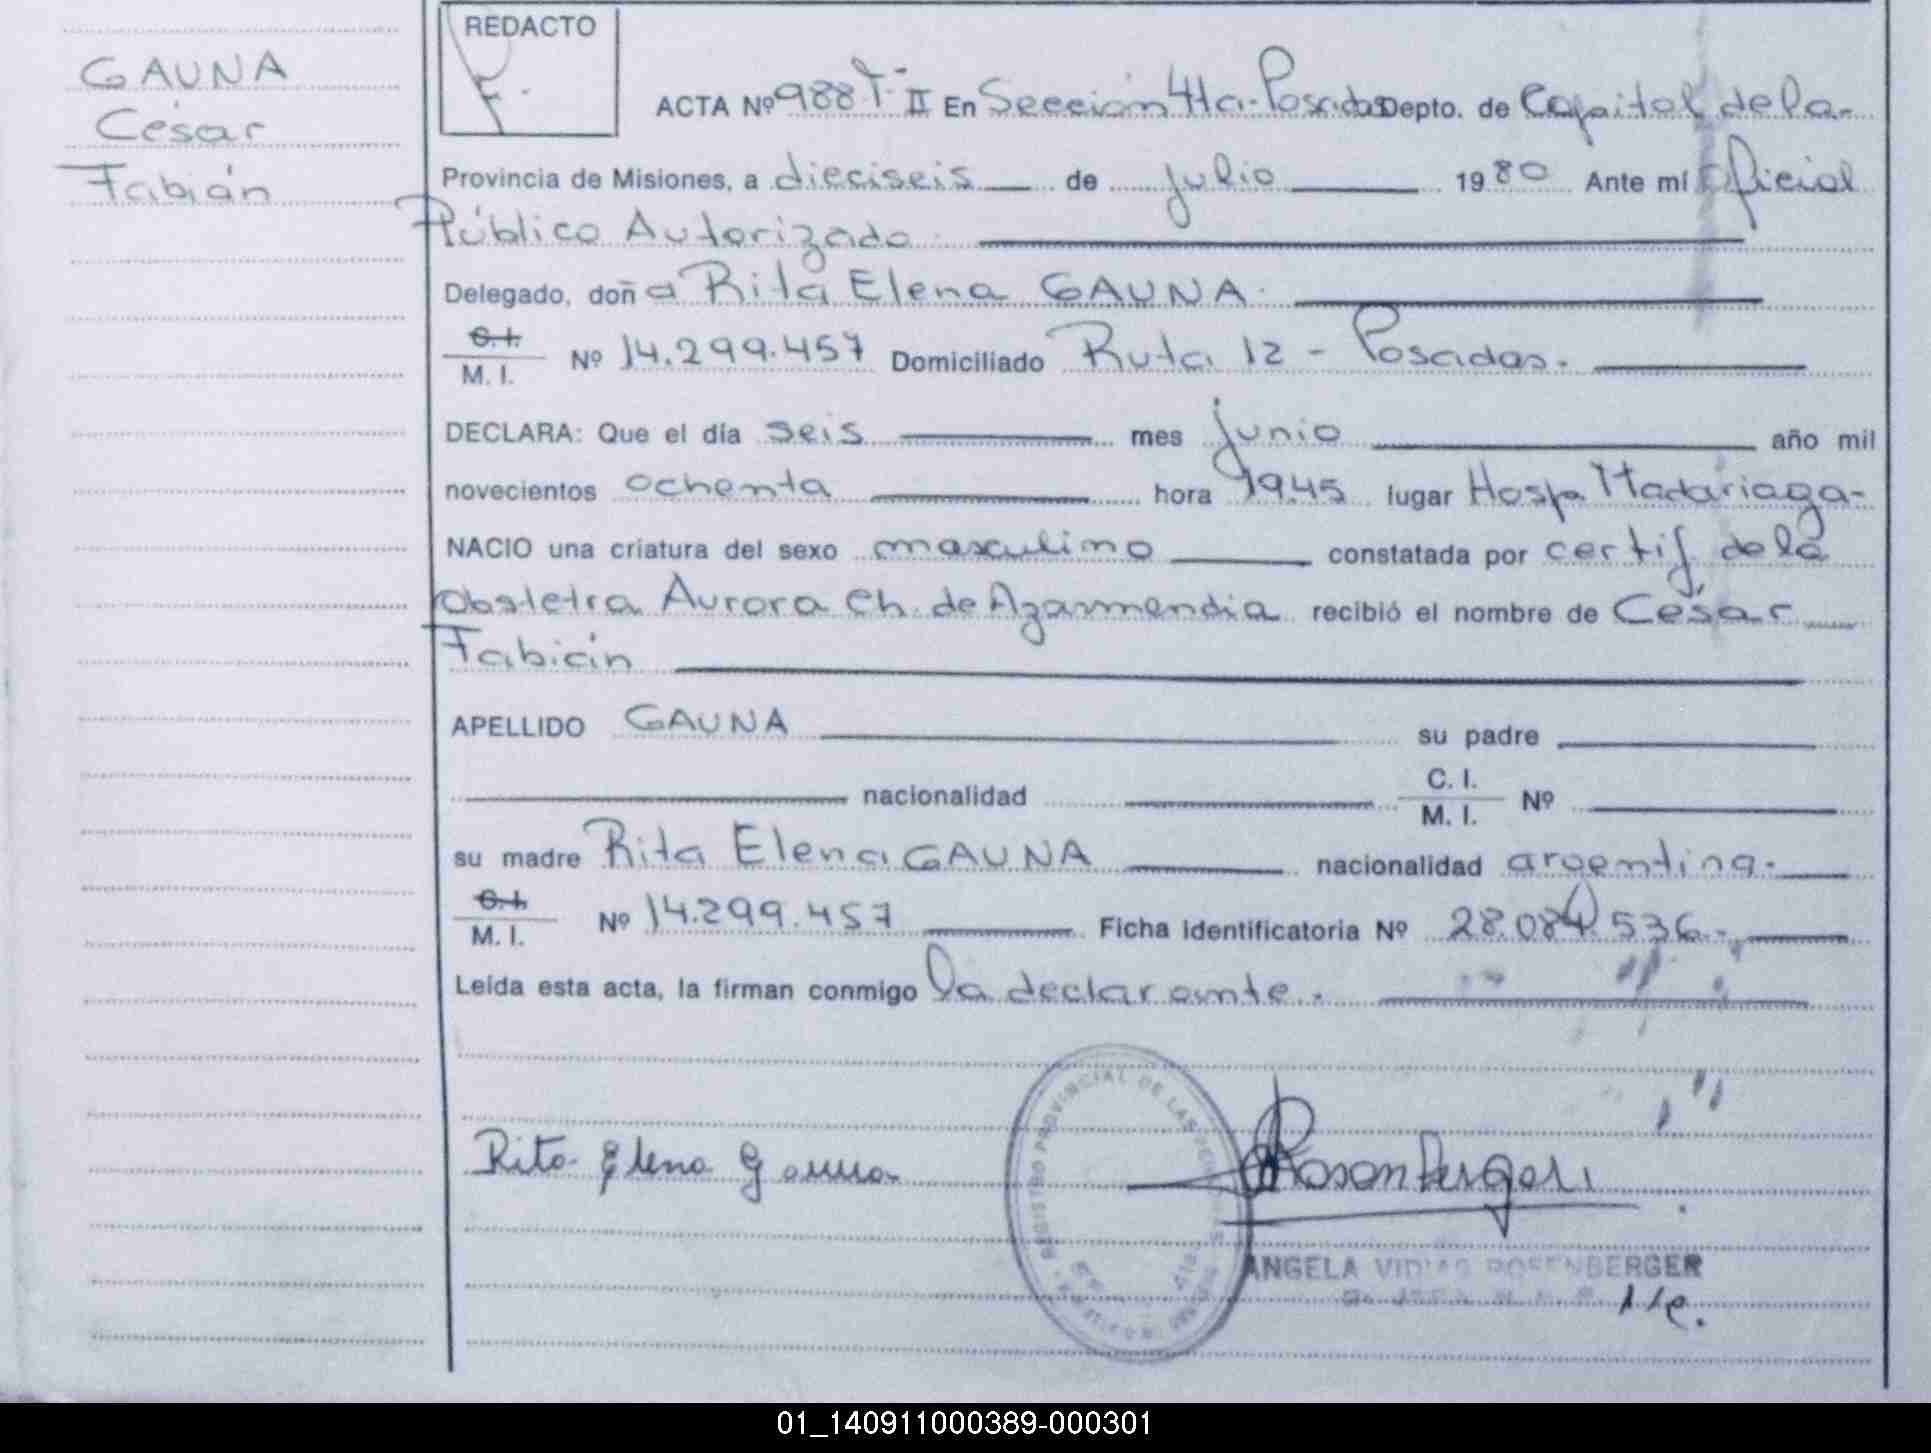 GAUNA
César
Fabián
REDACTO
F.
ACTA Nº 988 T- II En Sección 4ta. Posadas Depto. de Capital de la-
Provincia de Misiones, a dieciseis de julio 1980 Ante mí Oficial
Público Autorizado
Delegado, doña Rita Elena GAUNA.
C. I.
M. I. Nº 14.299.457 Domiciliado Ruta 12 - Posadas.
DECLARA: Que el día seis mes junio año mil
novecientos ochenta hora 19.45 lugar Hosp. Madariaga-
NACIO una criatura del sexo masculino constatada por certif. de la
obstetra Aurora Ch. de Azarmendia recibió el nombre de César
Fabián
APELLIDO GAUNA su padre
nacionalidad C. I.
M. I. Nº
su madre Rita Elena GAUNA nacionalidad argentina.
C. I.
M. I. Nº 14.299.457 Ficha identificatoria Nº 28.084.536.-
Leída esta acta, la firman conmigo la declarante.
REGISTRO PROVINCIAL DE LAS PERSONAS
Rita Elena Gauna
Rosenberger
ANGELA ROSENBERGER
01_140911000389-000301